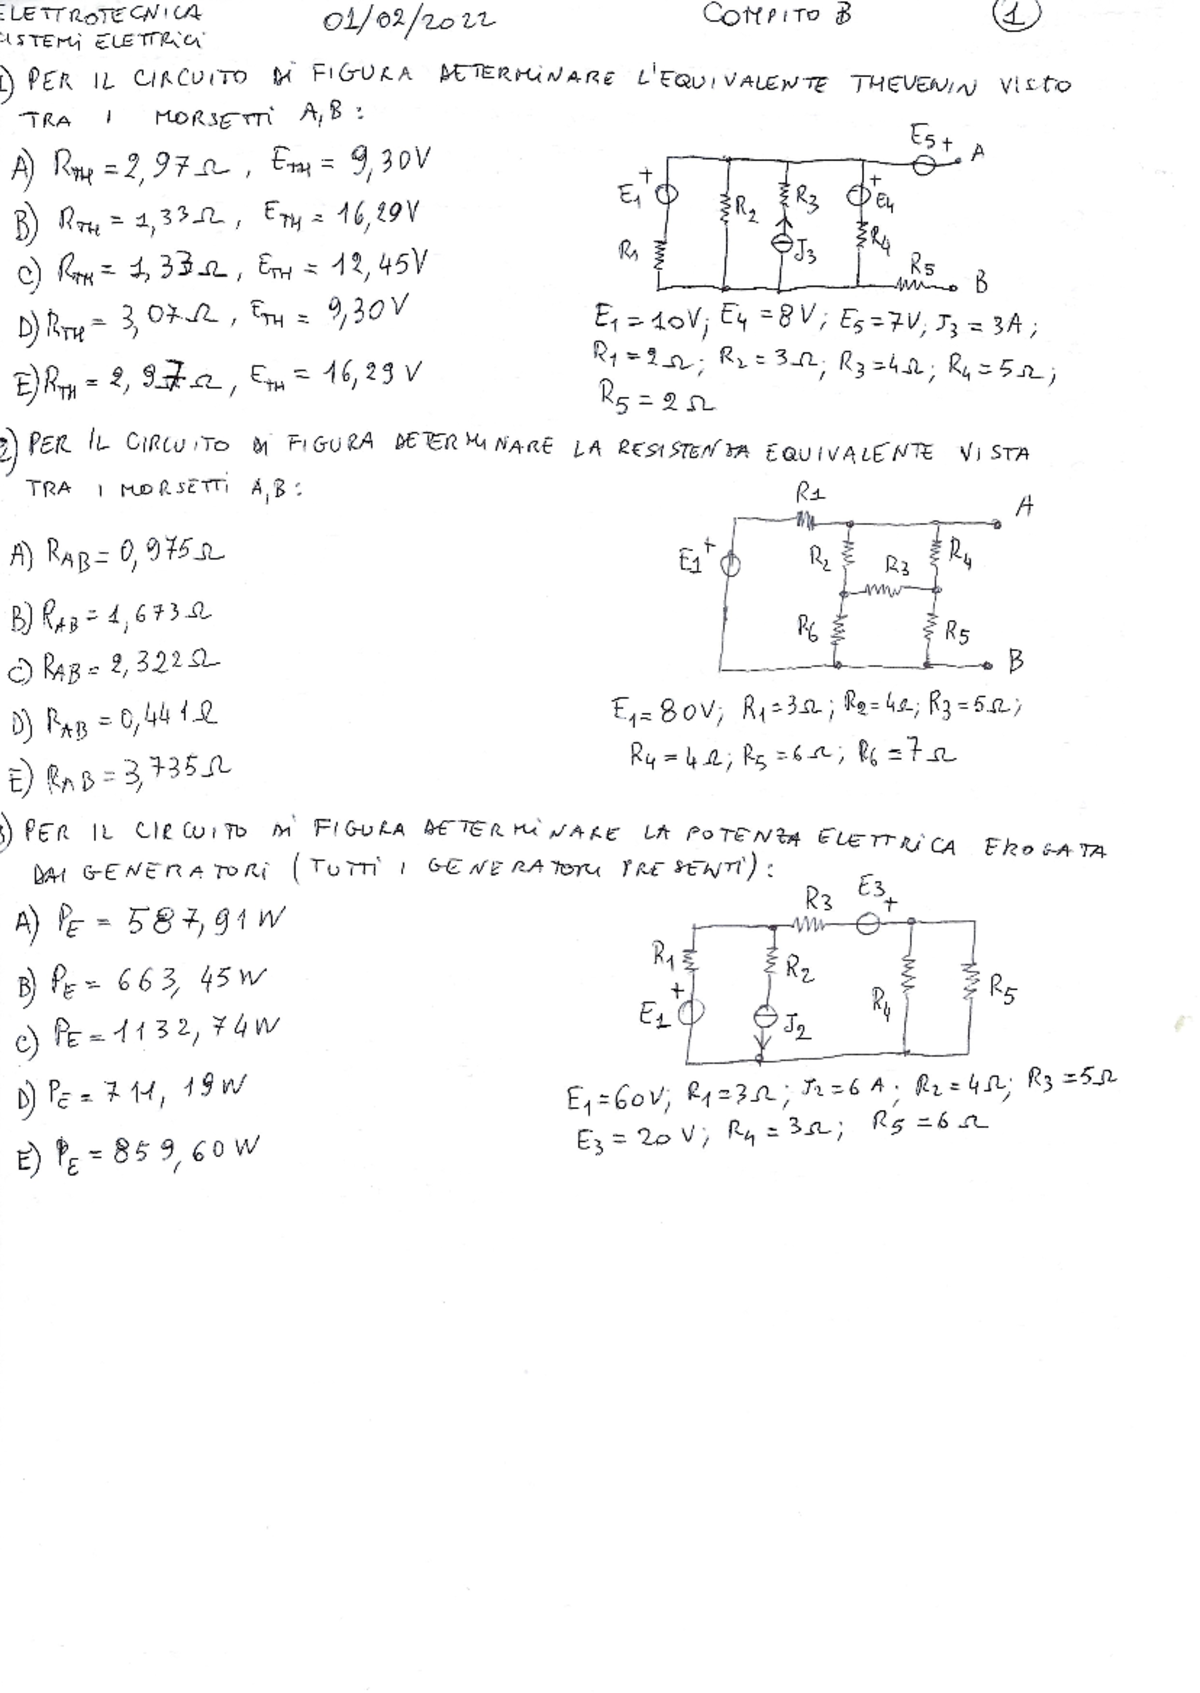 ELETTROTECNICA 01/02/2022 COMPITO B 1
SISTEMI ELETTRICI
1) PER IL CIRCUITO DI FIGURA DETERMINARE L'EQUIVALENTE THEVENIN VISTO
TRA I MORSETTI A,B:
A) RTH = 2,97Ω, ETH = 9,30V
B) RTH = 1,33Ω, ETH = 16,29V
C) RTH = 1,33Ω, ETH = 12,45V
D) RTH = 3,07Ω, ETH = 9,30V
E) RTH = 2,97Ω, ETH = 16,29V
E5 + A
+ E1 R2 R3 + E4
R1 J3 R4 R5 B
E1 = 10V; E4 = 8V; E5 = 7V; J3 = 3A;
R1 = 2Ω; R2 = 3Ω; R3 = 4Ω; R4 = 5Ω;
R5 = 2Ω
2) PER IL CIRCUITO DI FIGURA DETERMINARE LA RESISTENZA EQUIVALENTE VISTA
TRA I MORSETTI A,B:
A) RAB = 0,975Ω
B) RAB = 1,673Ω
C) RAB = 2,322Ω
D) RAB = 0,441Ω
E) RAB = 3,735Ω
R1 A
E1 + R2 R3 R4
R6 R5 B
E1 = 80V; R1 = 3Ω; R2 = 4Ω; R3 = 5Ω;
R4 = 4Ω; R5 = 6Ω; R6 = 7Ω
3) PER IL CIRCUITO DI FIGURA DETERMINARE LA POTENZA ELETTRICA EROGATA
DAI GENERATORI (TUTTI I GENERATORI PRESENTI):
A) PE = 587,91W
B) PE = 663,45W
C) PE = 1132,74W
D) PE = 711,19W
E) PE = 859,60W
R3 E3 +
R1 R2
+ E1 J2 R4 R5
E1 = 60V; R1 = 3Ω; J2 = 6A; R2 = 4Ω; R3 = 5Ω
E3 = 20V; R4 = 3Ω; R5 = 6Ω